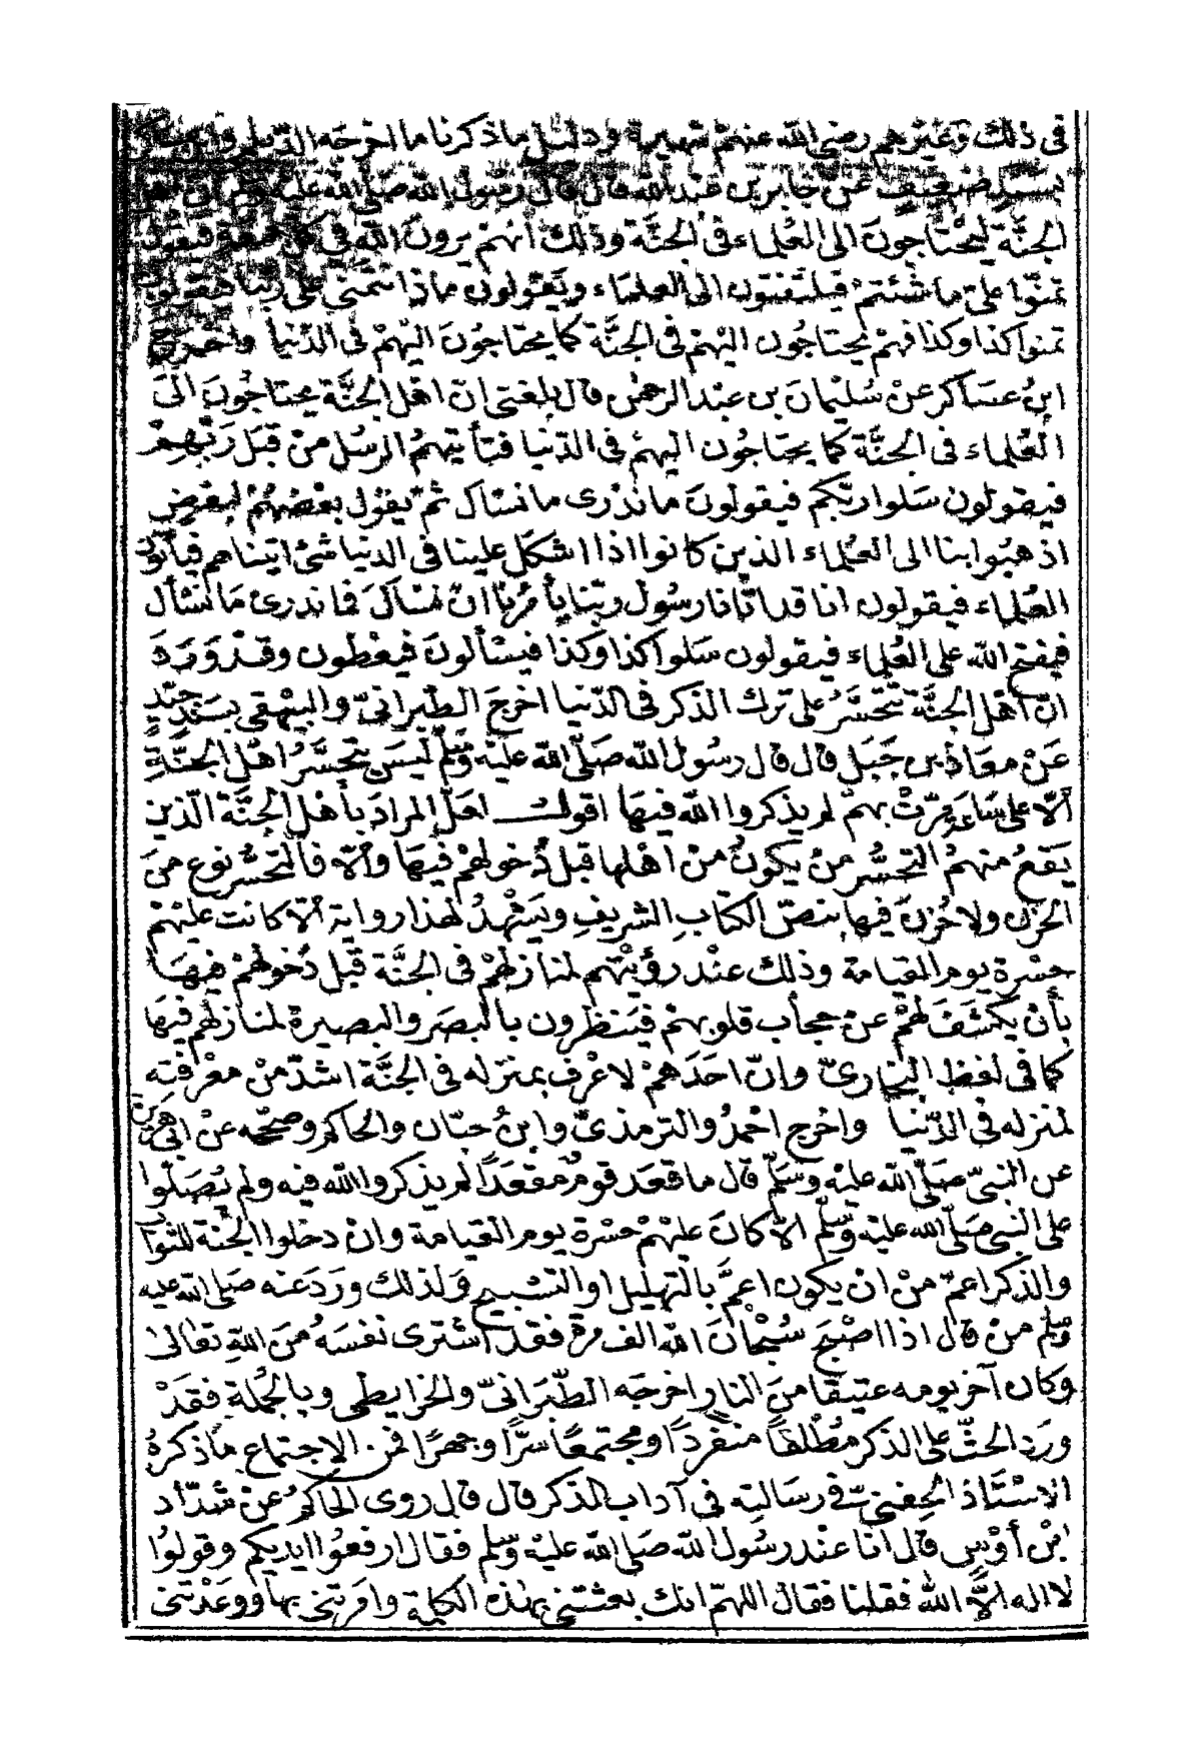 فى ذلك وَغيْرهم رضى الله عنهمْ شهيرة ودليْل ماذكرنا ما اخرجَه الدّيلمى وابن عساكر
بسَندٍ ضَعِيفٍ عَنْ جَابر بن عَبْد الله قال قال رسُول الله صَلّى الله عليْه وسلم انّ اهل
الجنَّة ليَحْتاجُونَ الى العُلماء فى الجنَّة وذلك أنهمْ يرَونَ الله فى كل جمعة فيقول
تمنّوا علىّ ما شئتمْ فيلتفتون الى العلماء ويَقولون ماذا نتمَنى على ربّنا فيقولون
تمنوا كذا وكذا فهمْ يحتاجُون اليْهمْ فى الجنَّة كما يحتاجُونَ اليْهمْ فى الدّنيا واخرج
ابنُ عسَاكر عنْ سُليْمانَ بن عبْد الرحمن قال بلغنى انّ اهْل الجنَّة يحتاجُونَ الىَ
العُلماء فى الجنَّة كما يحتاجُون اليهمْ فى الدّنيا فتأتيهمُ الرسُل منْ قبَل رَبّهمْ
فيقولون سَلوا ربّكم فيقولونَ ماندْرى مانسْأل ثمّ يقول بعْضهُمْ لبعْضٍ
اذهبُوا بنا الى العُلماء الذين كانوا اذا اشكل علينا فى الدنيا شئ اتيناهم فيأتون
العُلماء فيقولون انا قد اتانا رسُول ربّنا يأمرُنا انْ نسْألَ فما ندرى مَا نسْأل
فيفتح الله على العُلماء فيقولون سَلوا كذا وكذا فيسْألونَ فيعْطون وقدْ وَرَدَ
انّ أهْل الجنَّة تتحَسَّرُ على ترك الذكر فى الدّنيا اخرجَ الطبرانىّ والبيْهقى بسَندٍ جيّدٍ
عَنْ معَاذ بن جَبَل قال قال رسُول الله صَلّى الله عليْه وسَلّم ليْسَ يتحسَّرُ اهْل الجنَّةِ
الّا على سَاعَة مرّتْ بهمْ لم يذكروا الله فيهَا اقول لعَلّ المرادَ بأهْل الجنَّة الّذين
يَقعُ منهمُ التحسُّر منْ يكونُ منْ أهْلها قبل دُخولهمْ فيهَا والّا فالتحسُّر نوع منَ
الحزْن ولا حُزنَ فيها بنصّ الكتابِ الشريفِ ويَشْهدُ لهذا رواية الّا كانت عليْهمْ
حسْرة يوم القيامة وذلك عنْد رؤيتهم لمنازلهمْ فى الجنَّة قبْل دُخولهمْ فيهَا
بأنْ يكشَفَ لهمْ عنْ حجاب قلوبهمْ فيَنظرون بالبصَر والبصيرة لمنازلهم فيها
كما فى لفظ البخارىّ وانّ احَدَهمْ لاعْرف بمنزله فى الجنَّة اشدّ منْ معْرفتِه
لمنزله فى الدّنيا واخرج احْمدُ والترمذىّ وابنُ حبّان والحاكم وصحّحه عنْ ابى هريرة
عن النبىّ صَلّى الله عليْه وسَلّم قال ماقعَد قومٌ مَقعَدًا لم يذكروا الله فيه ولم يُصَلّوا
على النبى صَلّى الله عليْه وسَلّم الّا كانَ عليْهمْ حسْرة يوم القيامة وانْ دخلوا الجنّة للثواب
والذكر اعمّ منْ انْ يكون اعمَّ بالتهليل او التسْبيح وَلذلك ورَدَ عنه صَلى الله عليه
وسلم منْ قال اذا اصْبحَ سُبْحانَ الله الف مرّة فقد اشْترى نفسَهُ منَ اللهِ تعَالىٰ
وكان آخر يومه عتيقا منَ النارِ اخرجَه الطّبَرانىّ والخرايطى وبالجُملة فقدْ
ورَد الحثّ على الذكر مُطْلقاً منفرداً ومجتمعًا سرًّا وجهرًا فمن الاجتماع ماذكرهُ
الاسْتَاذ الحِفنىّ فى رسَالتِه فى آداب الذكر قال قال روى الحاكمُ عنْ شدّاد
ابْن أوْسٍ قال انا عنْد رسُول الله صَلى الله عليْه وسّلم فقال ارفعُوا ايديكم وقولوُا
لا اله الّا الله فقلنا فقال اللهمّ انك بعثتنى بهذه الكلمة وامَرتنى بها ووعَدْتنى